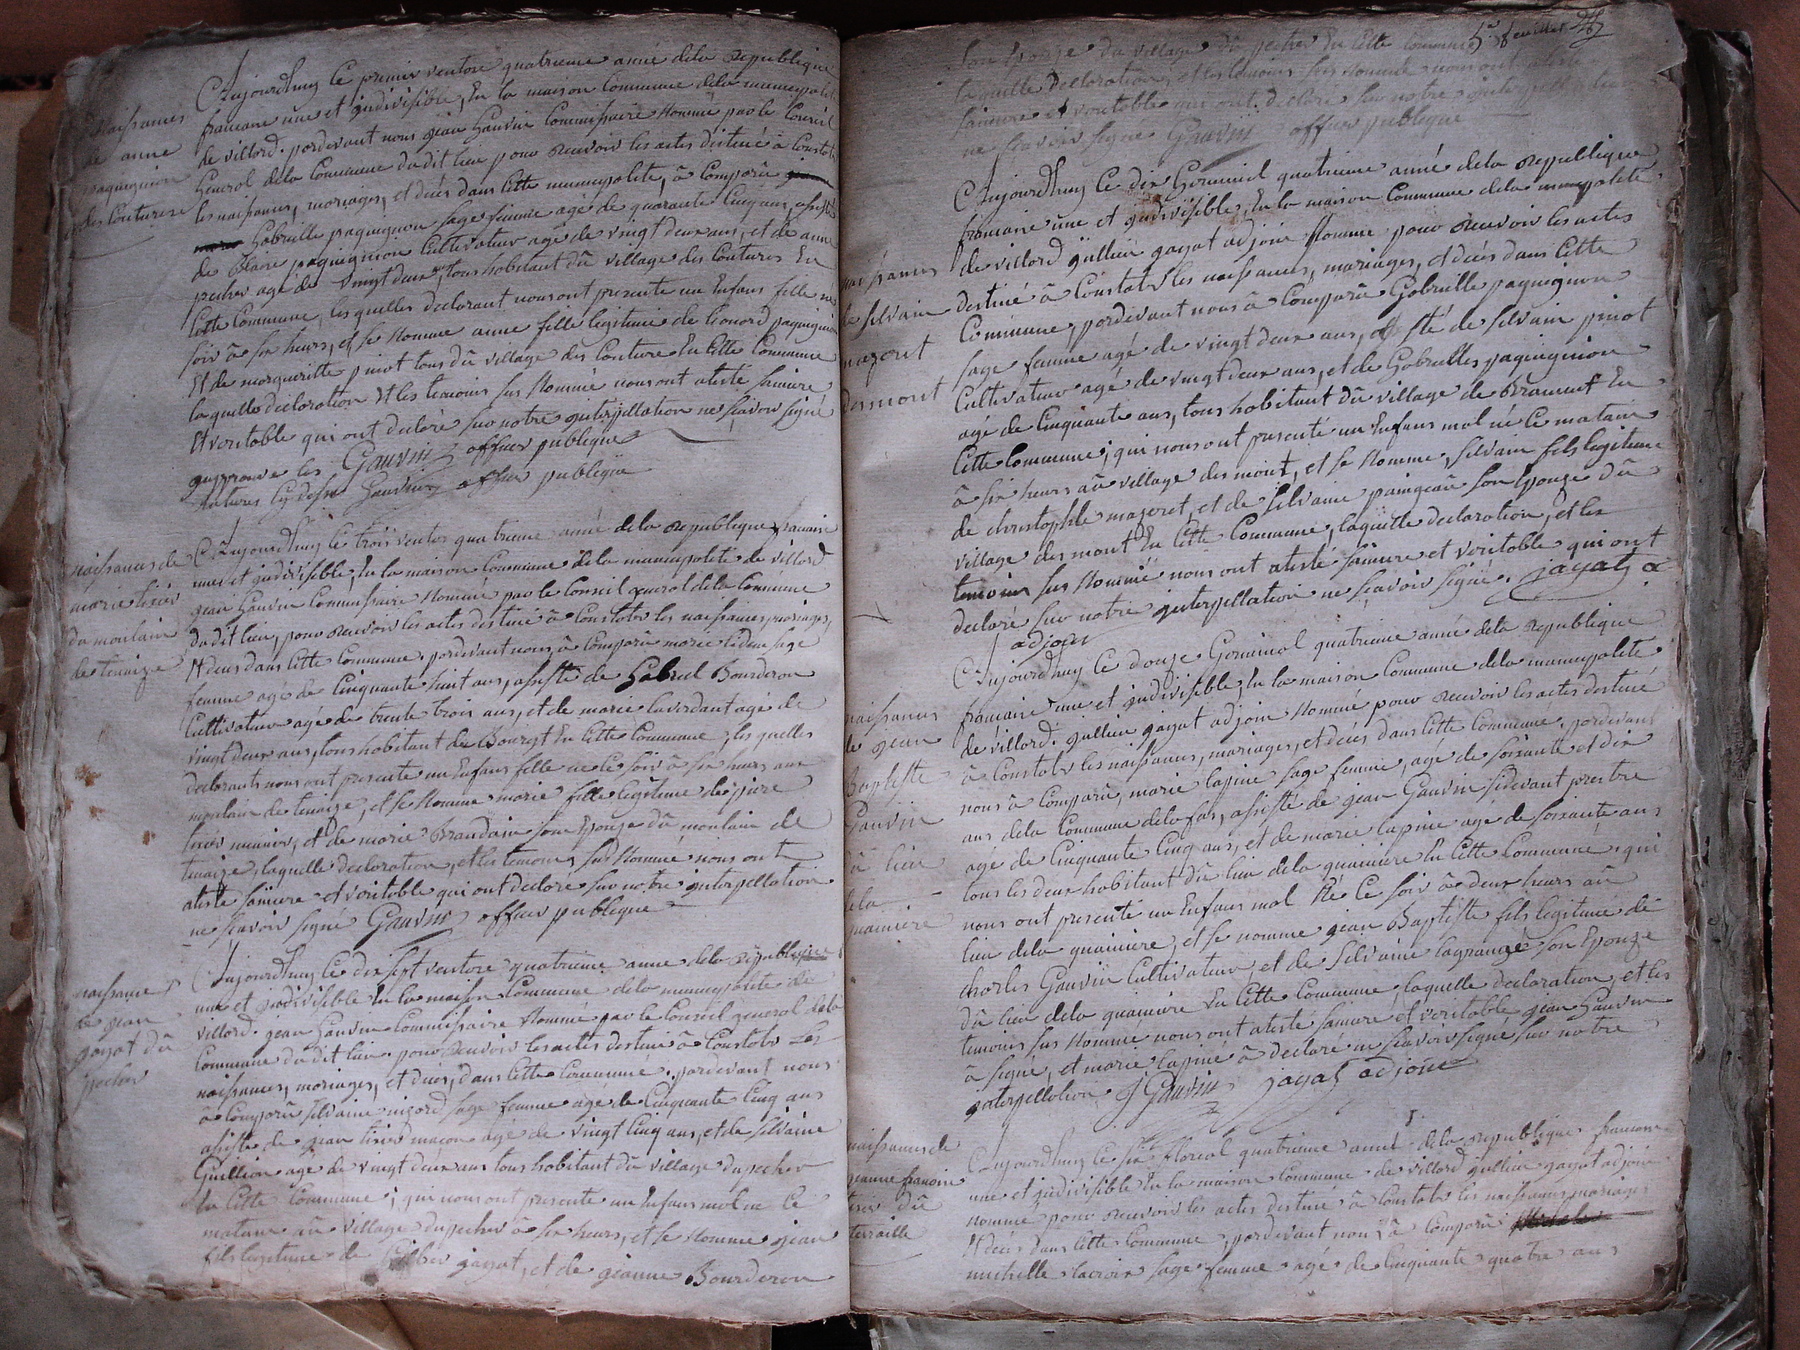 Naissances
de anne
paquignion
des Coutures
Aujourdhuy Ce premier ventose quatrieme anné dela Republique
francaise une et jndivisible, En la maison Commune dela municipalité
de villard. pardevant nous jean Gauvin Commissaire Nommé par le Conseil
General dela Commune dudit lieu pour Recevoir les actes destiné à Constater
les naissances, mariages, et décés dans Cette municipalité, à Comparû
Gabrielle paquignon sage femme agé de quarante Cinq ans, assisté
de Blaise paquignion Cultivateur agé de vingt deux ans, et de anne
pecher agé de vingt deux, tous habitant dû village des Coutures En
Cette Commune, les quelles declarant nous ont presente un Enfans fille né
soir à six heurs, et se Nomme anne fille legitime de Lionard paquignion
Et de margueritte pinot tous dû village des Couture En Cette Commune
laquelle declaration Et les temoins sus Nommé nous ont atesté saincere
Et veritable qui ont declaré sur notre jnterpellation ne sçavoir signé
japprouve les Gauvin officier publique
ratures Cy dessu Gauvin officier publique
naissances de
marie tixier
du moulain
de tenaize
Aujourdhuy Ce trois ventos quatrieme anné dela Republique francaise
une et jndivisible, En la maison Commune dela municipalité de villard
jean Gauvin Commissaire Nommé par le Conseil General dela Commune
dudit lieu, pour Recevoir les actes destiné à Constater les naissances, mariages,
Et deces dans Cette Commune. pardevant nous à Comparû marie sage
femme agé de Cinquante huit ans, assisté de Gabriel Bourderon
Cultivateur agé de trente trois ans, et de marie laverdant agé de
vingt deux ans, tous habitant du Bourgt En Cette Commune, les quelles
declarants nous ont presente un Enfans fille né Ce soir à six heurs au
moulain de tenaize, et se Nomme marie fille legitime de
tixier munier, et de marie Braudain son Epouze dû moulain de
tenaize, laquelle declaration, et les temoins sus Nommé nous ont
atesté saincere et veritable qui ont declaré sur notre jnterpellation
ne sçavoir signé Gauvin officier publique
naissances
de jean
gayat dû
pecher
Aujourdhuy Ce dix sept ventose quatrième anné dela republique
une et jndivisible En la maison Commune dela municipalité de
villard. jean Gauvin Commissaire Nommé par le Conseil general dela
Commune du dit lieu pour Recevoir les actes destiné à Constater Les
naissances, mariages, et décés, dans Cette Commune. pardevant nous
à Comparû silvaine nizard sage femme agé de Cinquante Cinq ans
assisté de jean tixier maçon agé de vingt Cinq ans, et de silvaine
Guillion agé de vingt deux ans tous habitant dû village du pecher
En Cette Commune, qui nous ont presenté un Enfans mal né Ce
matain au village du pecher à six heurs, et se Nomme jean
fils legitime de gayat, et de jeanne Bourderon
5e feuillet
son Epouze du village du pecher En Cette Commune
la quelle declaration, et les temoins sus Nommé nous ont atesté
saincere et veritable qui ont declaré sur notre jnterpellation
ne sçavoir signé Gauvin officier publique
naissances
de silvain
mazeret
desmont
Aujourdhuy Ce dix Germinal quatrieme anné dela Republique
francaise une et jndivisible, En la maison Commune dela municipalité
de villard jullien gayat adjoin Nommé pour Recevoir les actes
destiné à Constater les naissances, mariages, et décés dans Cette
Commune, pardevant nous à Comparû Gabrielle paquignon
sage femme agé de vingt deux ans, assisté de silvain pinot
Cultivateur agé de vingt deux ans, et de Gabrielles paquignion
agé de Cinquante ans, tous habitant dû village de En
Cette Commune, qui nous ont presenté un Enfans mal né Ce matain
à six heurs aû village des mont, et se Nomme, silvain fils legitime
de christophle mazeret, et de silvaine paingeaû son Epouze dû
village des mont En Cette Commune, laquelle declaration, et les
temoins sus Nommé nous ont atesté saincere et veritable qui ont
declaré sur notre jnterpellation ne sçavoir signé. jayat
adjoin
naissances
de jean
Baptiste
Gauvin
dû lieu
dela
quainiere
Aujourdhuy Ce douze Germinal quatrieme anné dela Republique
francaise une et jndivisible, En la maison Commune dela municipalité
de villard. jullien gayat adjoin Nommé pour Recevoir les actes destiné
à Constater les naissances, mariages, et décés dans Cette Commune. pardevant
nous à Comparû, marie lapine sage femme, agé de soixante et dix
ans dela Commune dela fas, assisté de jean Gauvin sidevant prestre
agé de Cinquante Cinq ans, et de marie lapine agé de soixante ans
tous les deux habitant dû lieu dela quainiere En Cette Commune, qui
nous ont presenté un Enfans mal Né Ce soir à deux heurs aû
lieu dela quainiere, et se nomme jean Baptiste fils legitime de
charles Gauvin Cultivateur, et de silvaine lagrange son Epouze
dû lieu dela quainiere En Cette Commune, laquelle declaration, et les
temoins sus Nommé nous ont atesté saincere et veritable jean Gauvin
à signé, et marie lapine à declaré ne sçavoir signé sur notre
jnterpellation J Gauvin jayat adjoin
naissances de
jeanne francoise
dû
Aujourdhuy Ce six floreal quatrieme anné dela republique francaise
une et jndivisible En la maison Commune de villard jullien gayat adjoin
nomme pour Recevoir les actes destine à Constater les naissances, mariages
Et décés dans Cette Commune, pardevant nous à Comparû
michelle lacroix sage femme agé de Cinquante quatre ans